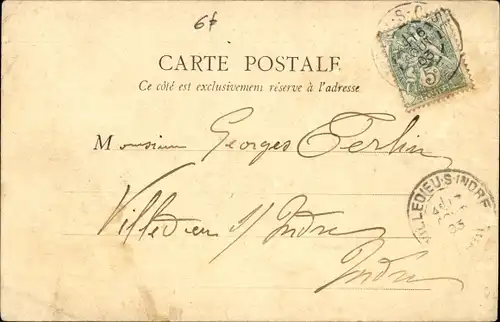 6f
CARTE POSTALE
Ce côté est exclusivement réservé à l'adresse
Monsieur Georges Ferlin
Villedieu s/ Indre
Indre
5
VILLEDIEU-S-INDRE